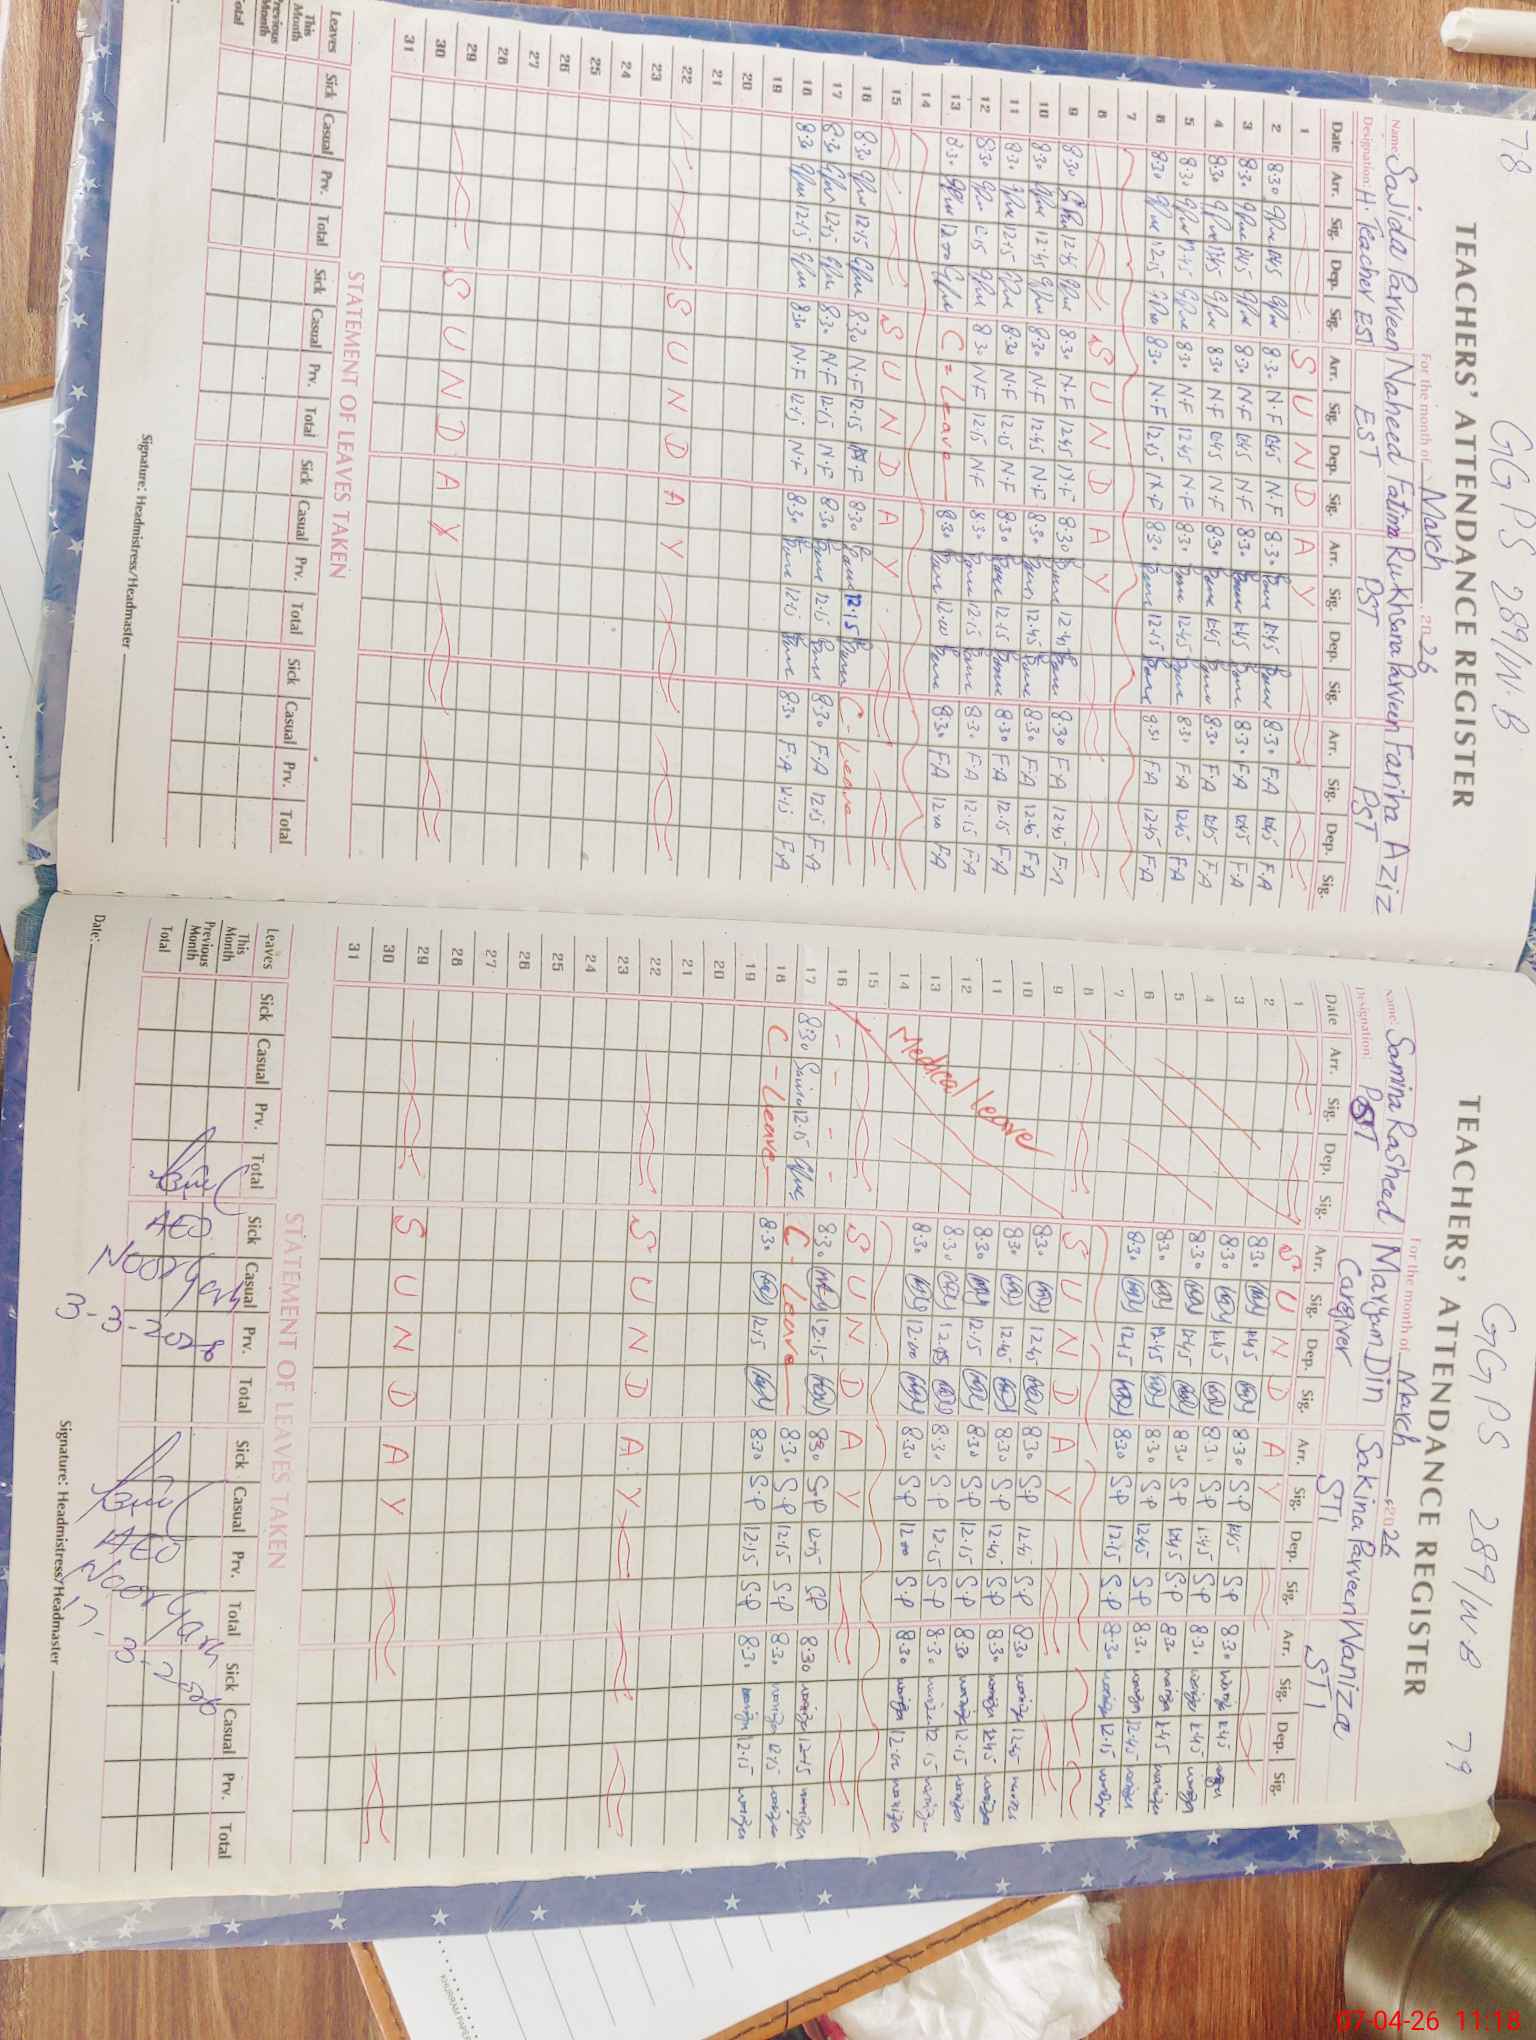 78
GGPS 289/W.B
TEACHERS' ATTENDANCE REGISTER
For the month of March 2026
Name: Sajida Parveen Naheed Fatima Rukhsana Parveen Fariha Aziz
Designation: H. Teacher EST EST PST PST
Date Arr. Sig. Dep. Sig. Arr. Sig. Dep. Sig. Arr. Sig. Dep. Sig. Arr. Sig. Dep. Sig.
1 S U N D A Y
2 8:30 1:45 8:30 N.F 1:45 N.F 8:30 1:45 8:30 F.A 1:45 F.A
3 8:30 1:45 8:30 N.F 1:45 N.F 8:30 1:45 8:30 F.A 1:45 F.A
4 8:30 1:45 8:30 N.F 1:45 N.F 8:30 1:45 8:30 F.A 1:45 F.A
5 8:30 12:45 8:30 N.F 12:45 N.F 8:30 12:45 8:30 F.A 12:45 F.A
6 8:30 12:15 8:30 N.F 12:15 N.F 8:30 12:15 F.A 12:45 F.A
7
8 S U N D A Y
9 8:30 12:45 8:30 N.F 12:45 N.F 8:30 12:45 8:30 F.A 12:45 F.A
10 8:30 12:45 8:30 N.F 12:45 N.F 8:30 12:45 8:30 F.A 12:45 F.A
11 8:30 12:15 8:30 N.F 12:15 N.F 8:30 12:15 8:30 F.A 12:15 F.A
12 8:30 12:15 8:30 N.F 12:15 N.F 8:30 12:15 8:30 F.A 12:15 F.A
13 8:30 12:00 C-Leave 8:30 12:00 8:30 F.A 12:00 F.A
14
15 S U N D A Y
16 8:30 12:15 8:30 N.F 12:15 N.F 8:30 12:15 C-Leave
17 8:30 12:15 8:30 N.F 12:15 N.F 8:30 12:15 8:30 F.A 12:15 F.A
18 8:30 12:15 8:30 N.F 12:15 N.F 8:30 12:15 8:30 F.A 12:15 F.A
19
20
21
22 S U N D A Y
23
24
25
26
27
28
29 S U N D A Y
30
31
STATEMENT OF LEAVES TAKEN
Leaves Sick Casual Prv. Total Sick Casual Prv. Total Sick Casual Prv. Total Sick Casual Prv. Total
This Month
Previous Month
Total
Signature: Headmistress/Headmaster
GGPS 289/W B 79
TEACHERS' ATTENDANCE REGISTER
For the month of March 2026
Name: Samina Rasheed Maryam Din Sakina Parveen Waniza
Designation: PST Caregiver STI STI
Date Arr. Sig. Dep. Sig. Arr. Sig. Dep. Sig. Arr. Sig. Dep. Sig. Arr. Sig. Dep. Sig.
1 S U N D A Y
2 8:30 1:45 8:30 S.P 1:45 S.P 8:30 waniza 1:45
3 8:30 1:45 8:3 S.P 1:45 S.P 8:3 waniza 1:45 waniza
4 8:30 1:45 8:30 S.P 1:45 S.P 8:30 waniza 1:45 waniza
5 8:30 12:45 8:30 S.P 12:45 S.P 8:30 waniza 12:45 waniza
6 8:30 12:15 8:30 S.P 12:15 S.P 8:30 waniza 12:15 waniza
7
8 S U N D A Y
9 8:30 12:45 8:30 S.P 12:45 S.P 8:30 waniza 12:45
10 8:30 12:45 8:30 S.P 12:45 S.P 8:30 waniza 12:45 waniza
11 8:30 12:15 8:30 S.P 12:15 S.P 8:30 waniza 12:15 waniza
12 8:30 8:30 S.P 12:15 S.P 8:30 waniza 12:15 waniza
13 8:30 12:00 8:30 S.P 12:00 S.P 8:30 waniza 12:00 waniza
Medical Leave
14
15 S U N D A Y
16 8:30 12:15 8:30 S.P 12:15 S.P 8:30 waniza 12:15 waniza
17 8:30 12:15 C-Leave 8:30 S.P 12:15 S.P 8:30 waniza 12:15 waniza
18 C-Leave 8:30 12:15 8:30 S.P 12:15 S.P 8:30 waniza 12:15 waniza
19
20
21
22 S U N D A Y
23
24
25
26
27
28
29 S U N D A Y
30
31
STATEMENT OF LEAVES TAKEN
Leaves Sick Casual Prv. Total Sick Casual Prv. Total Sick Casual Prv. Total Sick Casual Prv. Total
This Month
Previous Month
Total
AEO
Noor Garh
AEO
Noor Garh
Date:
Signature: Headmistress/Headmaster
KHURRAM PAPER
07-04-26 11:18